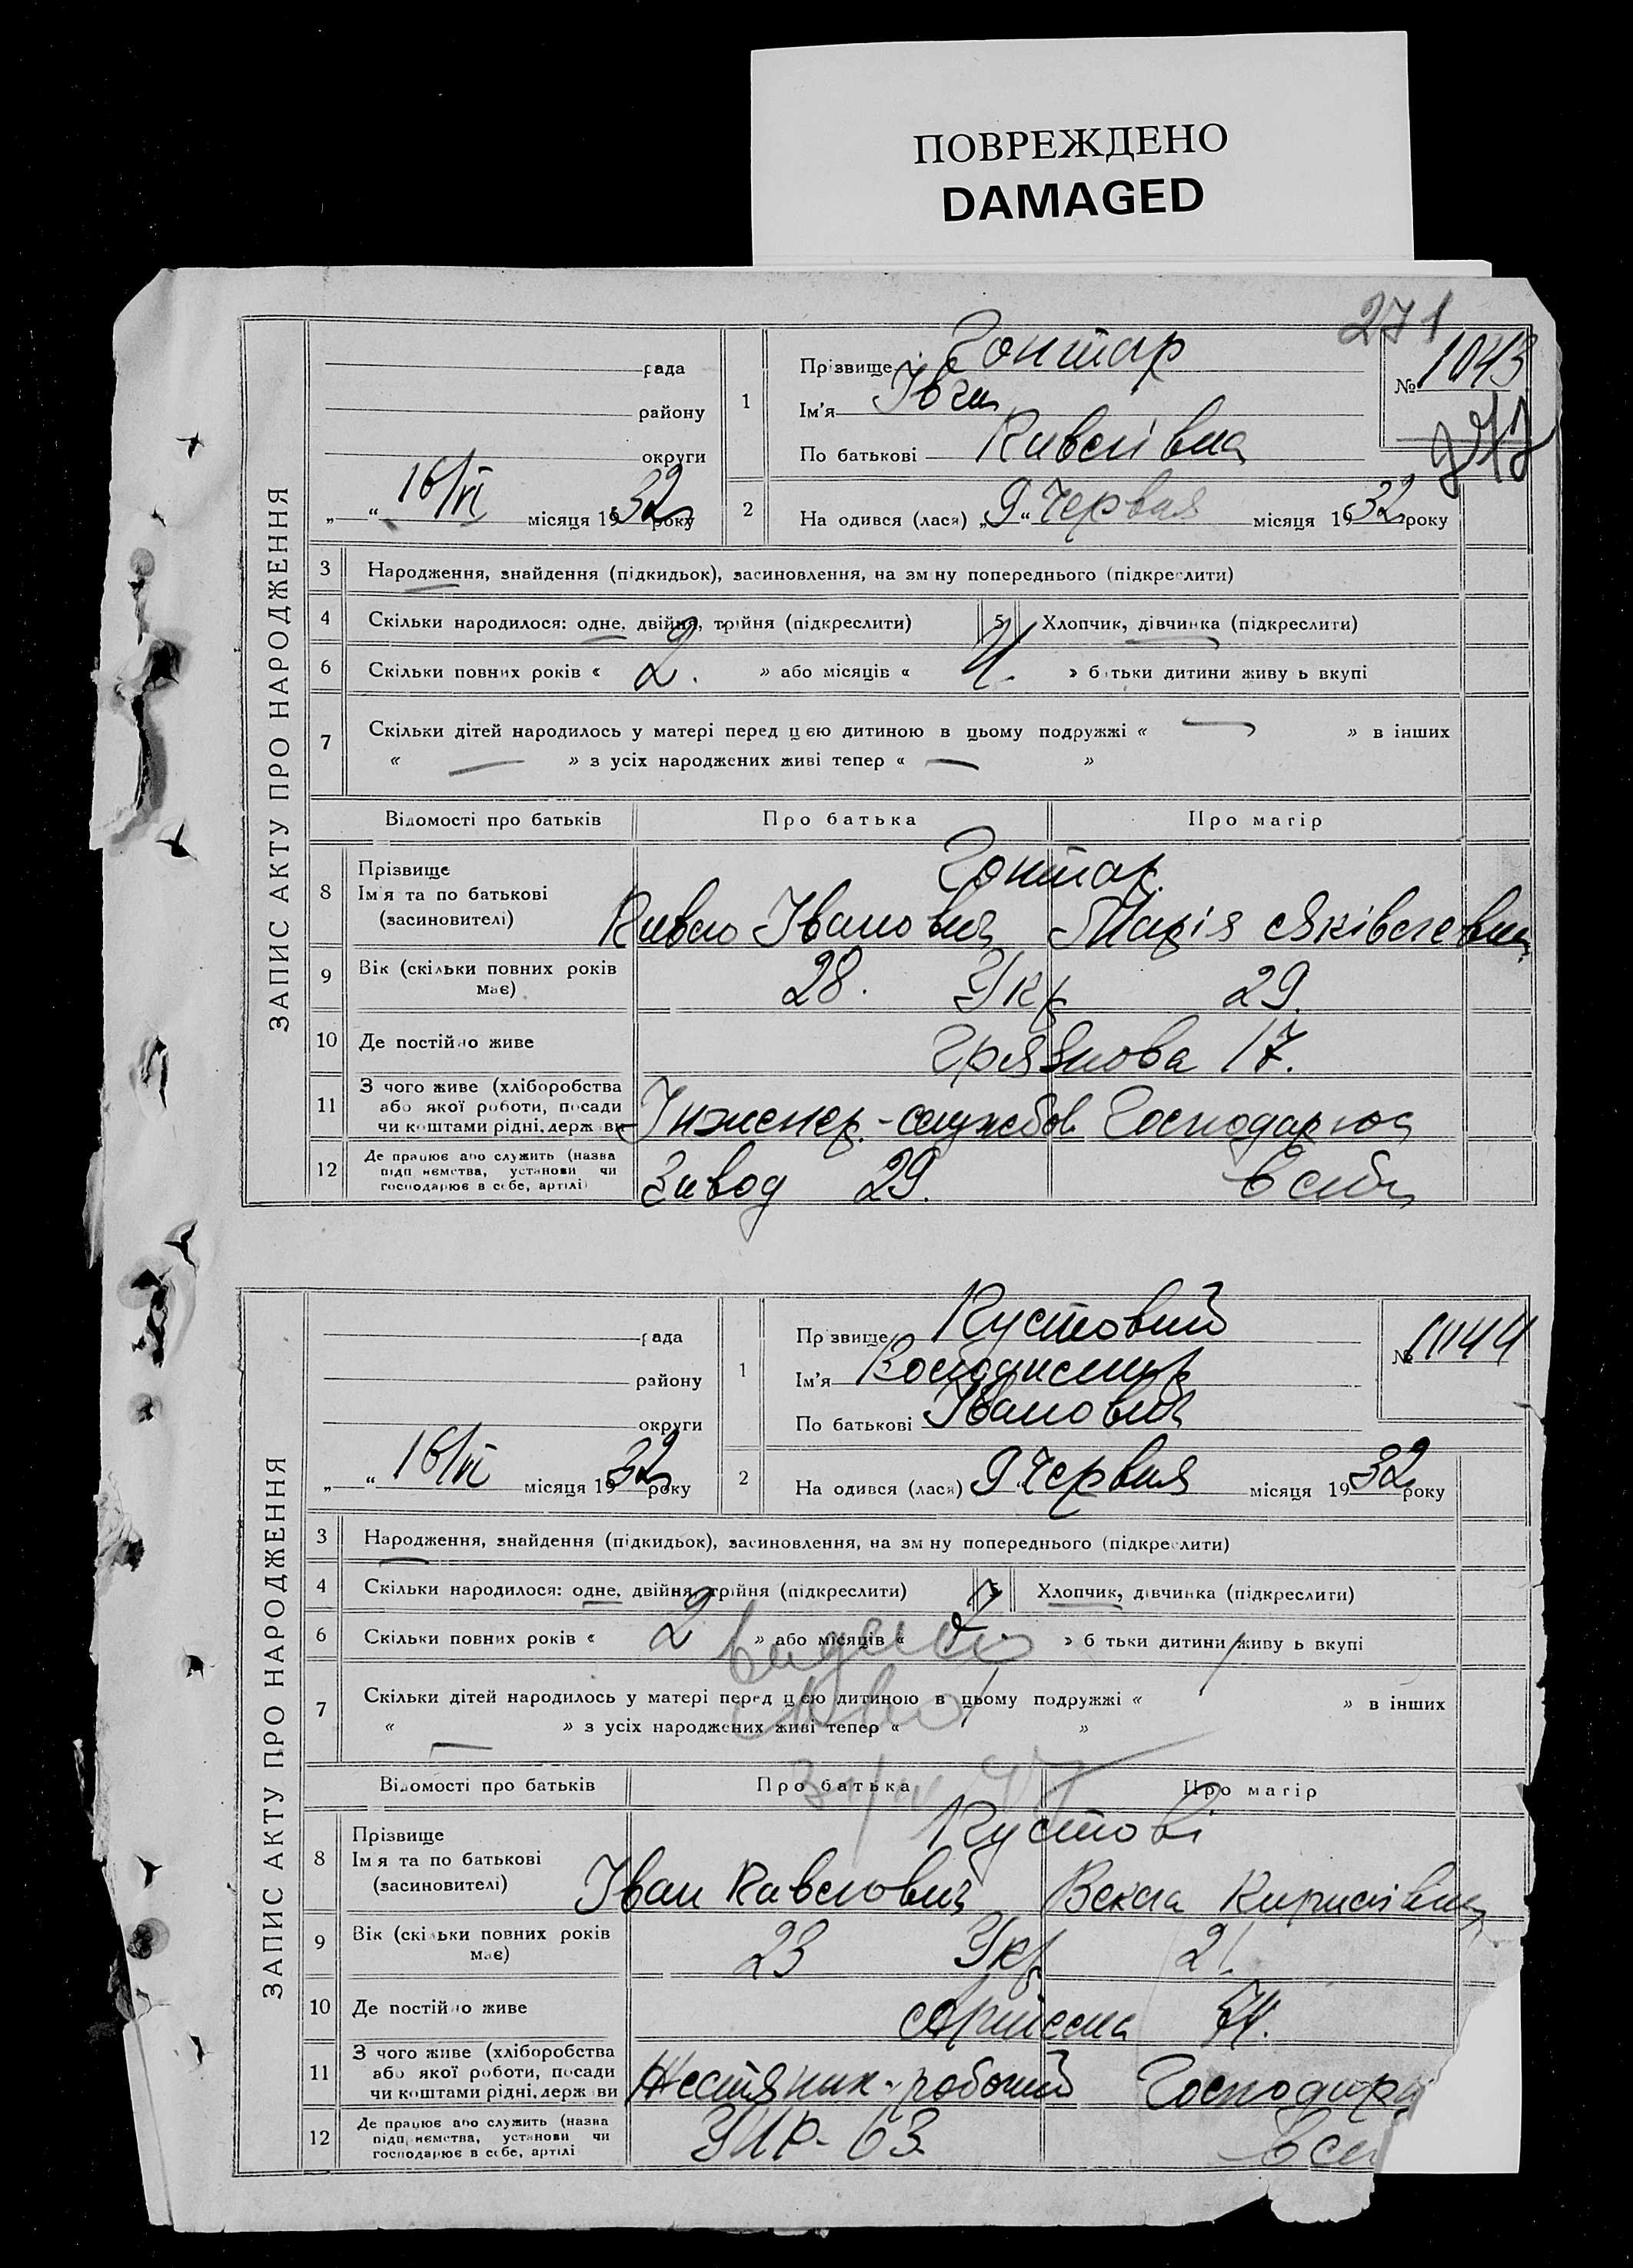 ПОВРЕЖДЕНО
DAMAGED
271
ЗАПИС АКТУ ПРО НАРОДЖЕННЯ
рада
району
округи
„ “ 16/VI місяця 1932 року
1
Прізвище Гонтар
Ім'я
По батькові
№ 1043
2
На одився (лася) „9“ Червня місяця 1932 року
3 Народження, знайдення (підкидьок), засиновлення, на зм ну попереднього (підкреслити)
4 Скільки народилося: одне, двійня, трійня (підкреслити) 5 Хлопчик, дівчинка (підкреслити)
6 Скільки повних років « 2. » або місяців « » б тьки дитини живу ь вкупі
7 Скільки дітей народилось у матері перед цею дитиною в цьому подружжі « — » в інших
« — » з усіх народжених живі тепер « — »
Відомості про батьків Про батька Про матір
8 Прізвище Гонтар.
Ім'я та по батькові
(засиновителі) Іванович Марія
9 Вік (скільки повних років має) 28. Укр 29.
10 Де постійно живе Грязнова 17.
11 З чого живе (хліборобства
або якої роботи, посади
чи коштами рідні, держ ви Інженер-службов. Господарює
12 Де працює або служить (назва
підп иємства, установи чи
господарює в себе, артілі) Завод 29. в себе
ЗАПИС АКТУ ПРО НАРОДЖЕННЯ
рада
району
округи
„ “ 16/VI місяця 1932 року
1
Пр звище Кустовий
Ім'я
По батькові Іванович
№ 1044
2
На одився (лася) 9 Червня місяця 1932 року
3 Народження, знайдення (підкидьок), засиновлення, на зм ну попереднього (підкреслити)
4 Скільки народилося: одне, двійня, трійня (підкреслити) 5 Хлопчик, дівчинка (підкреслити)
6 Скільки повних років « 2 » або місяців « » б тьки дитини живу ь вкупі
видано
7 Скільки дітей народилось у матері перед цею дитиною в цьому подружжі « » в інших
« — » з усіх народжених живі тепер « »
Відомості про батьків Про батька Про матір
8 Прізвище Кустові
Ім'я та по батькові
(засиновителі) Іван Павлович Векла Кирилівна
9 Вік (скільки повних років має) 23 Укр 21.
10 Де постійно живе
11 З чого живе (хліборобства
або якої роботи, посади
чи коштами рідні, держ ви Жестяник-робочий Господарю
12 Де працює або служить (назва
підп иємства, установи чи
господарює в себе, артілі в се